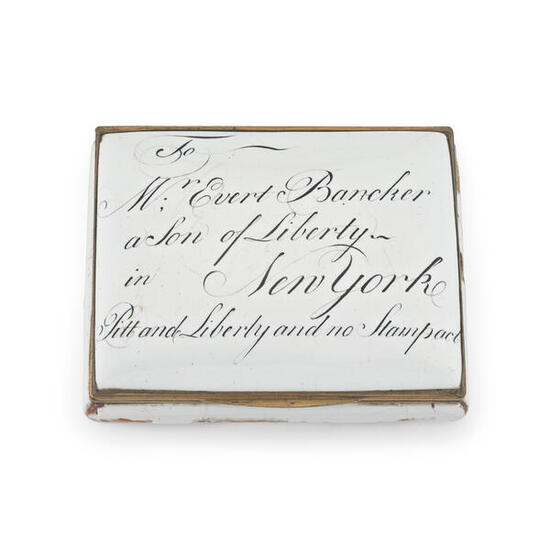 To
Mr: Evert Bancker
a Son of Liberty
in New York
Pitt and Liberty and no Stampact